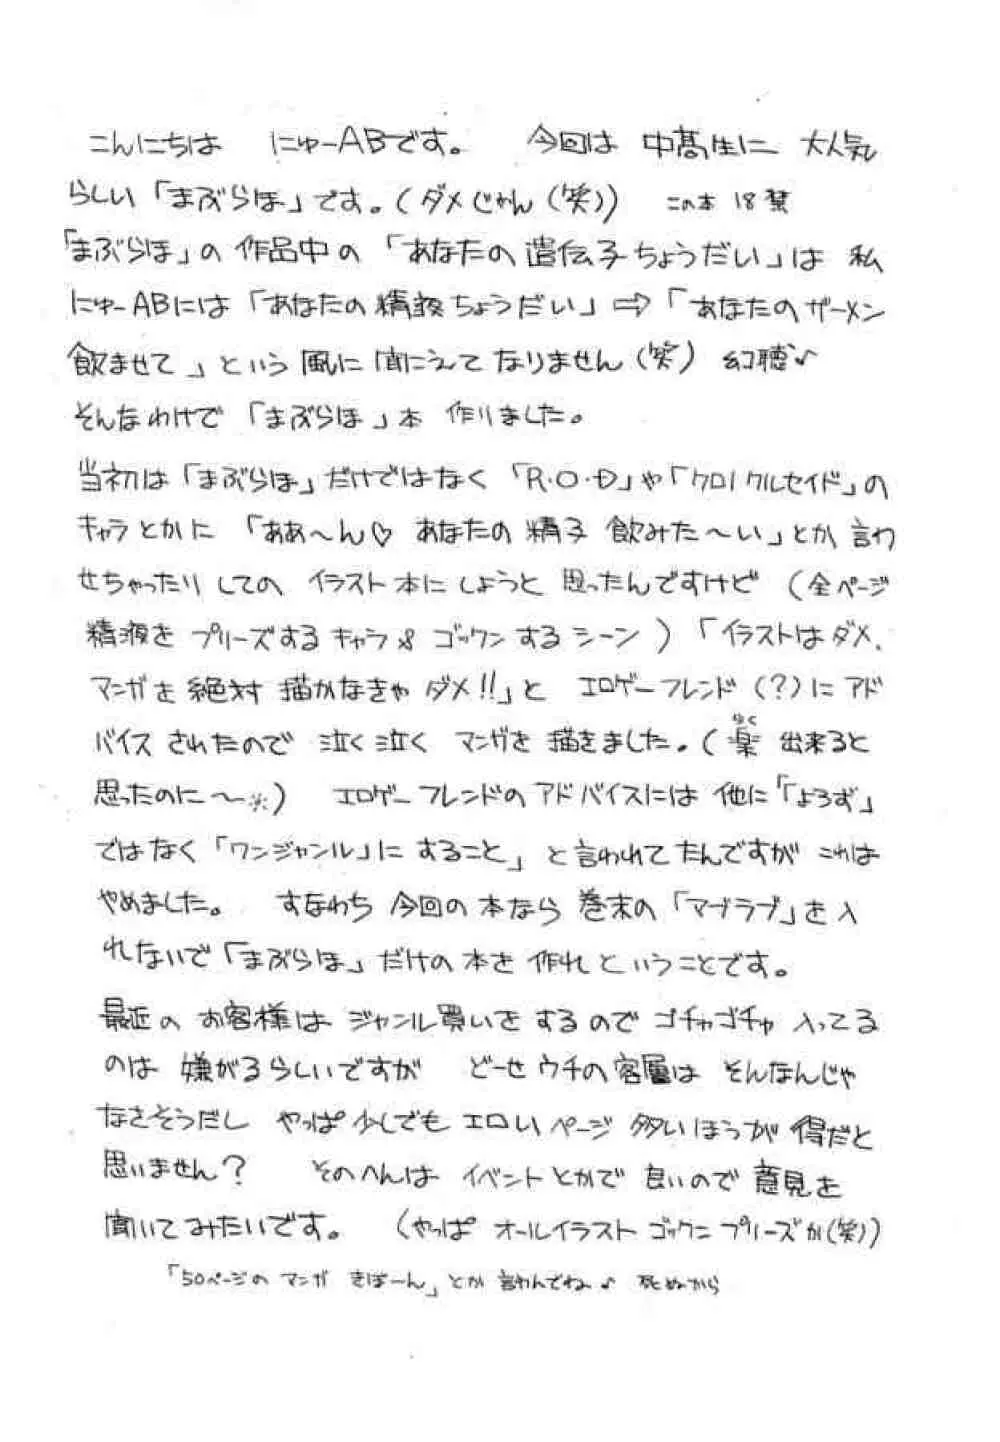 こんにちは　にゅーABです。　今回は 中高生に 大人気
らしい「まぶらほ」です。(ダメじゃん(笑))　この本 18禁
「まぶらほ」の 作品中の 「あなたの遺伝子ちょうだい」は 私
にゅーABには「あなたの精液ちょうだい」⇨「あなたのザーメン
飲ませて」という 風に 聞こえて なりません(笑) 幻聴♪
そんなわけで 「まぶらほ」本 作りました。
当初は「まぶらほ」だけではなく 「R・O・D」や「クロノクルセイド」の
キャラとかに 「ああ〜ん♡ あなたの 精子 飲みた〜い」とか 言わ
せちゃったり しての イラスト本に しようと 思ったんですけど (全ページ
精液を プリーズする キャラ& ゴックンするシーン)「イラストはダメ、
マンガを 絶対 描かなきゃ ダメ!!」と エロゲーフレンド(?)に アド
バイス されたので 泣く泣く マンガを 描きました。(楽 出来ると
らく
思ったのに〜※)　エロゲーフレンドのアドバイスには 他に「「よろず」
ではなく「ワンジャンル」に すること」 と 言われて たんですが これは
やめました。　すなわち 今回の 本なら 巻末の 「マブラブ」を 入
れないで「まぶらほ」だけの 本を 作れ と いうことです。
最近の お客様は ジャンル買いを するので ゴチャゴチャ 入ってる
のは 嫌がるらしいですが　どーせ ウチの 客層は そんなんじゃ
なさそうだし やっぱ 少しでも エロい ページ 多い ほうが 得だと
思いません?　そのへんは イベントとかで 良いので 意見を
聞いて みたいです。　(やっぱ オールイラスト ゴックン プリーズか(笑))
「50ページの マンガ きぼーん」とか 言わんでね♪ 死ぬから